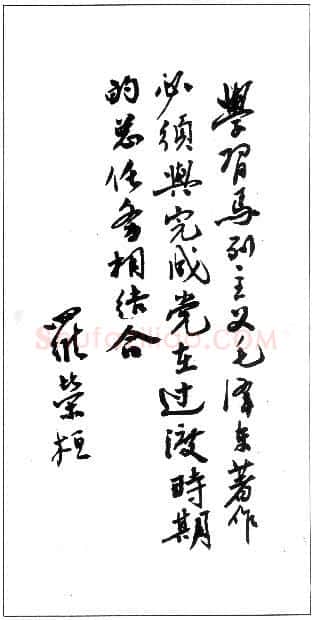 學習马列主义毛泽东著作
必须與完成党在过渡時期
的总任务相结合
羅荣桓